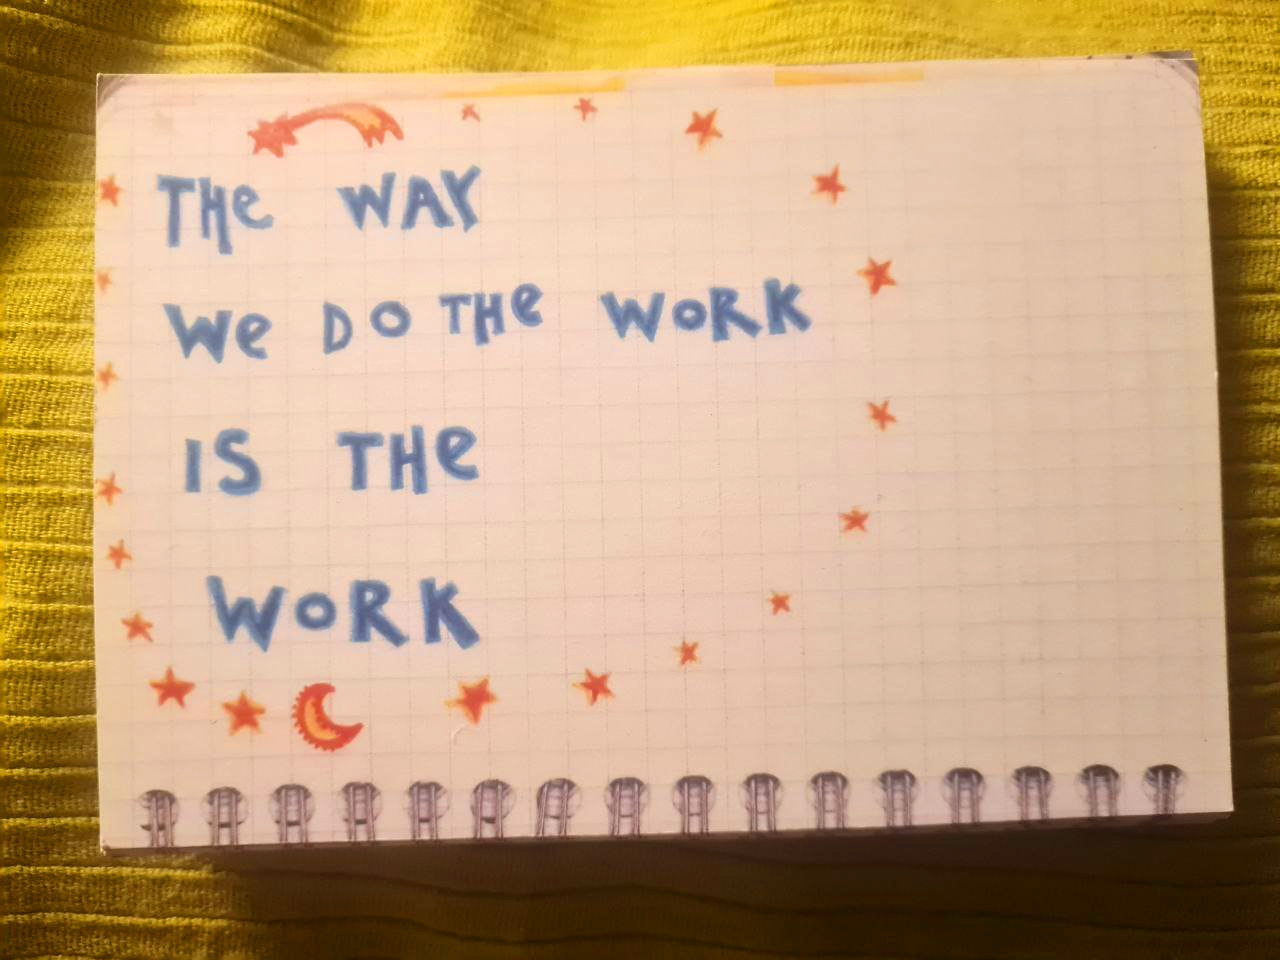 THe WAY
We DO THe WORK
IS THe
WORK